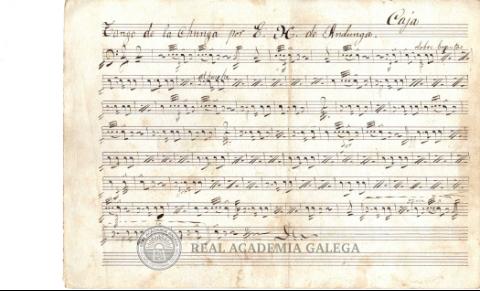 Caja
Tango de la Chunga por E. H. de Andunga.
REAL ACADEMIA GALEGA